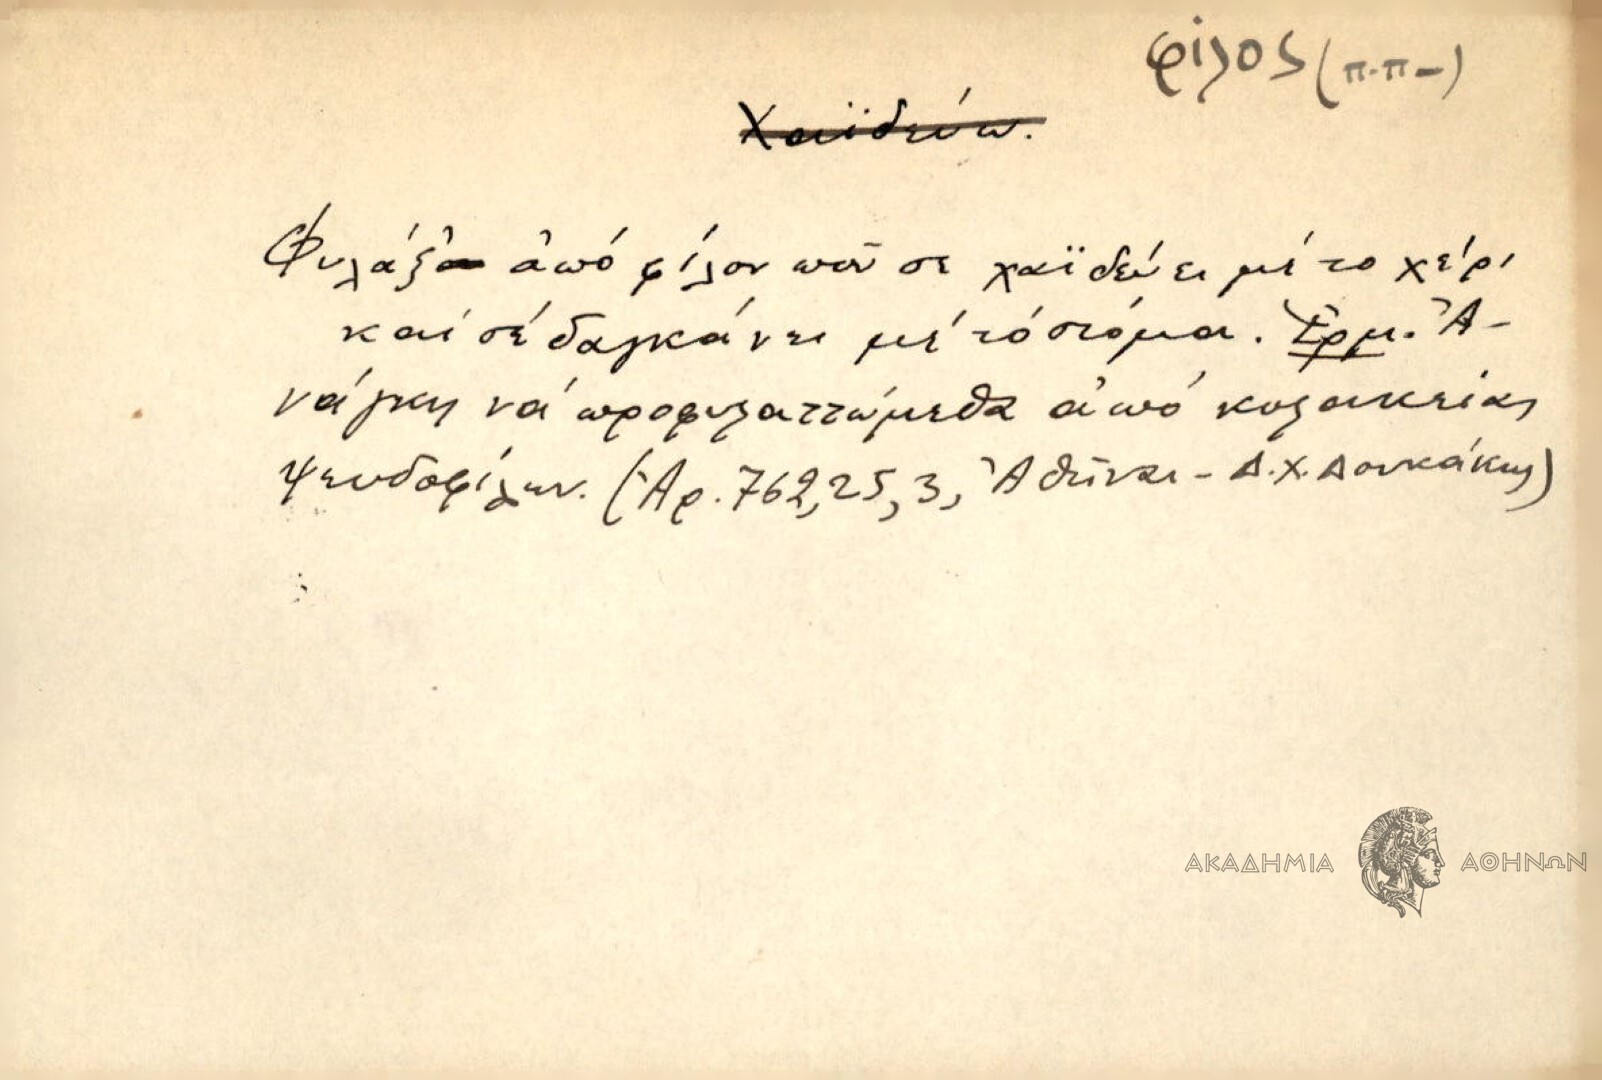 φίλος (π.π-)
Χαϊδεύω.
Φυλάξ ἀπό φίλον ποῦ σε χαϊδεύει μέ το χέρι
καί σέ δαγκάνει μέ τό στόμα. Ἑρμ. Ἀ-
νάγκη νά προφυλαττώμεθα ἀπό κολακείας
ψευδοφίλων. (Ἀρ. 762, 25, 3, Ἀθῆναι - Δ. Χ. Δουκάκης)
ΑΚΑΔΗΜΙΑ ΑΘΗΝΩΝ